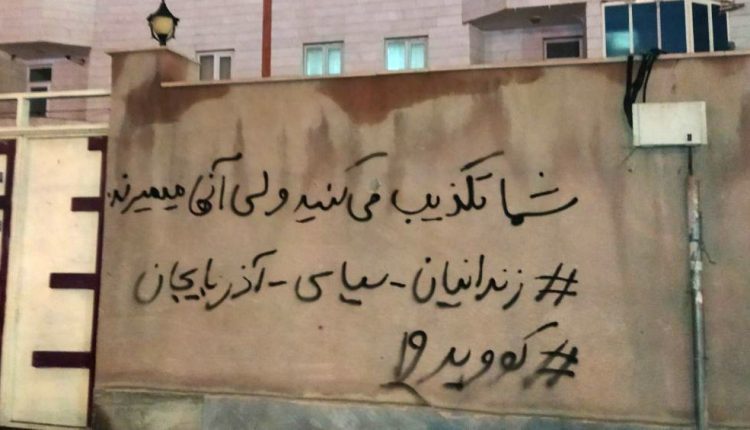 شما تکذیب می‌کنید ولی آنها میمیرند.
#زندانیان-سیاسی-آذربایجان
#کووید ۱۹